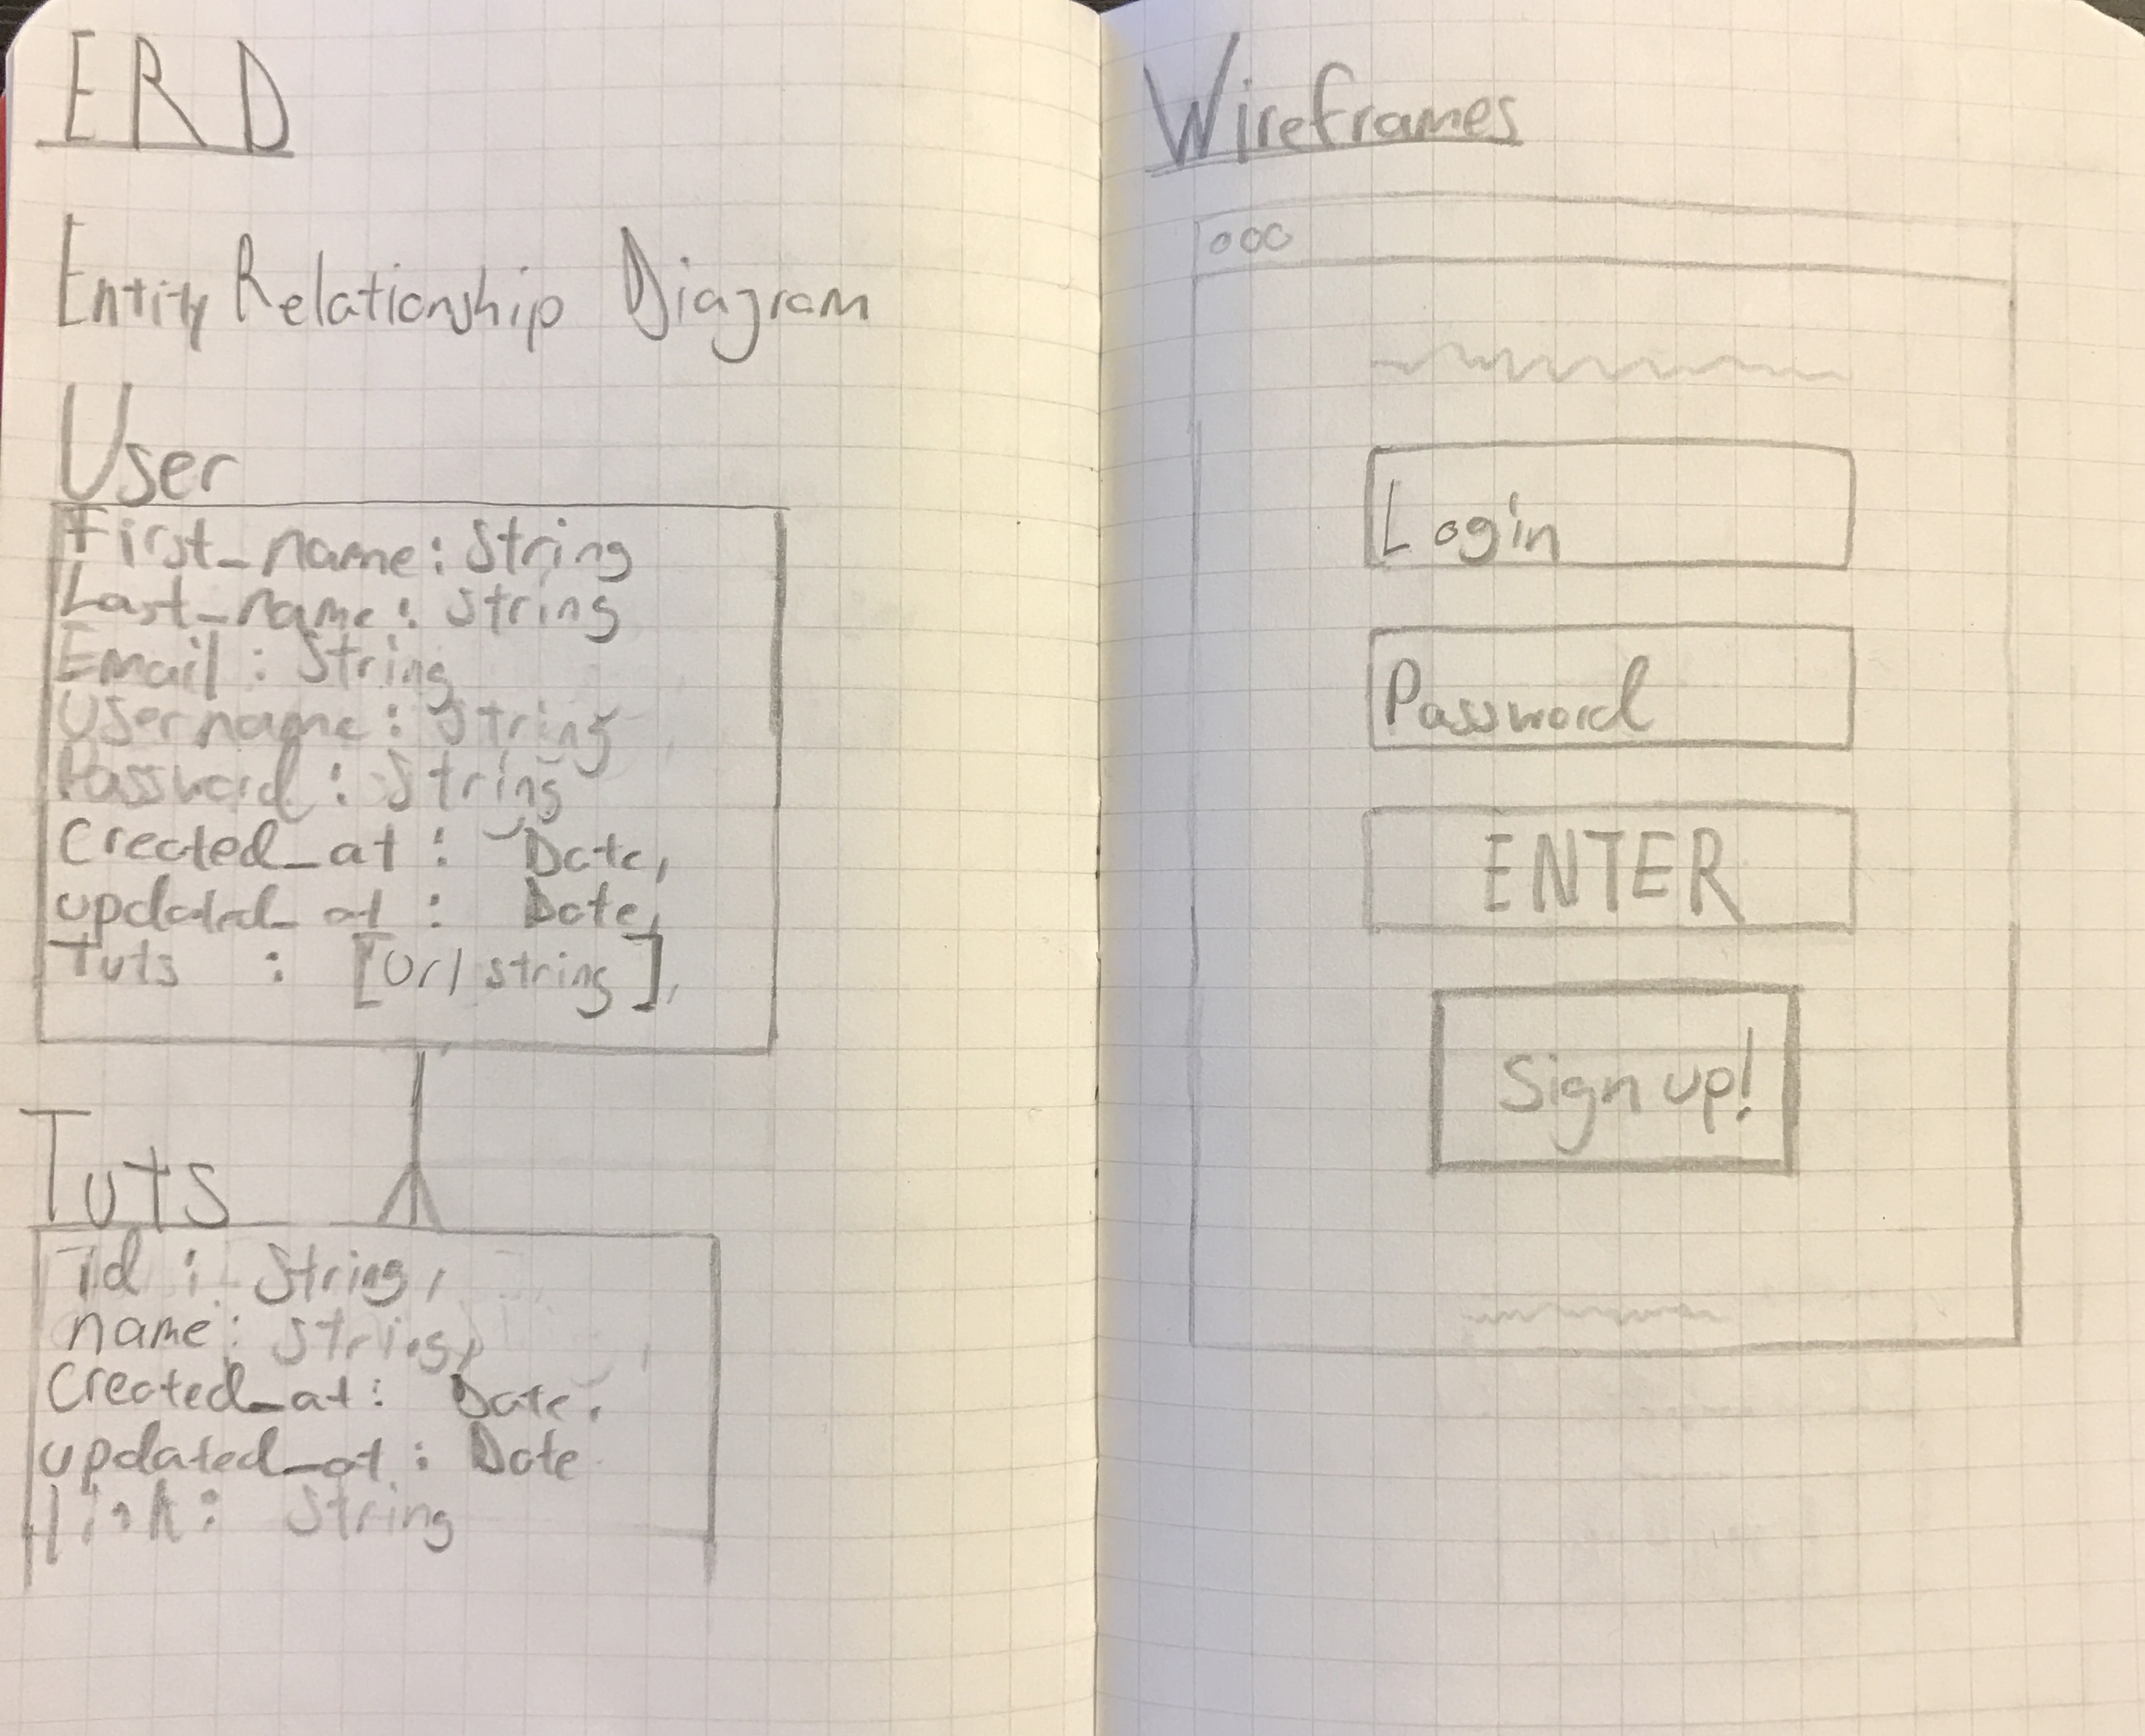 ERD
Entity Relationship Diagram
User
First_name: String
Last_name: String
Email: String
Username: String
Password: String
Created_at: Date,
updated_at: Date,
Tuts: [Url string],
Tuts
id: String,
name: String,
Created_at: Date,
updated_at: Date
link: String
Wireframes
Login
Password
ENTER
Sign up!